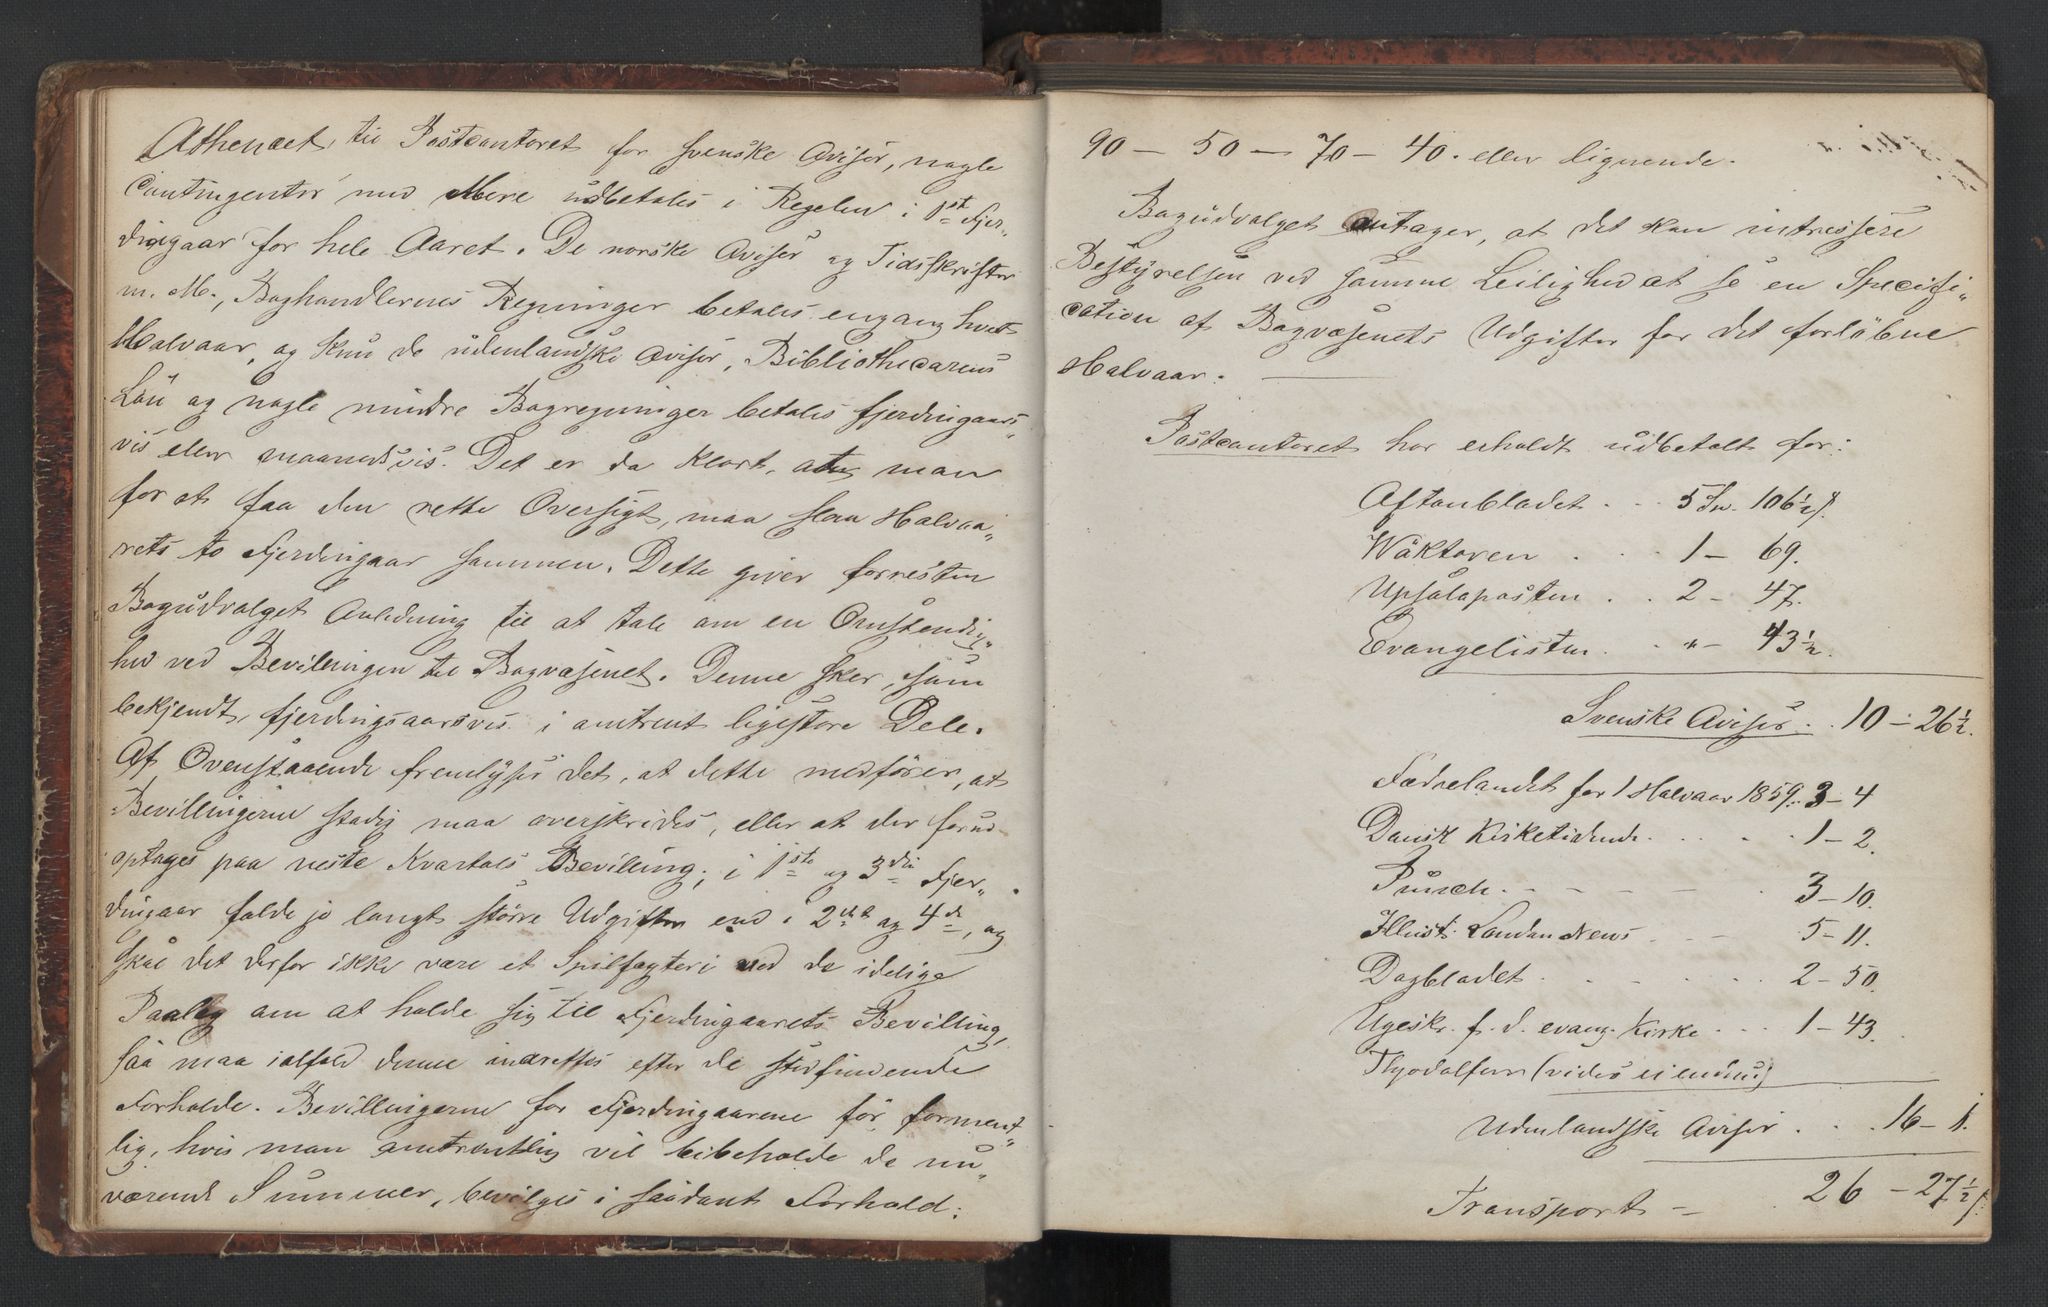 Athenæet, til Postcontoret for svenske Aviser, nogle
Contingenter med Mere udbetales i Regelen i 1ste Fjer„
dingaar for hele Aaret. De norske Aviser og Tidsskrifter
m. M., Boghandlernes Regninger betales engang hvert
Halvaar, og kun de udenlandske Aviser, Bibliothecarens
Løn og nogle mindre Bogregninger betales fjerdingaars„
vis eller maanedsvis. Det er da klart, at man
for at faa den rette Oversigt, maa slaa Halvaa„
rets to Fjerdingaar sammen. Dette giver forresten
Bogudvalget Anledning til at tale om en Omstændig„
hed ved Bevillingen til Bogvæsenet. Denne sker, som
bekjendt, fjerdingsaarsvis i omtrent ligestore Dele.
Af Ovenstaaende fremlyser det, at dette medfører, at
Bevillingerne stadig maa overskrides, eller at der forud
optages paa neste Kvartals Bevilling; i 1ste og 3die Fjer„
dingaar falde jo langt större Udgifter end i 2det og 4de, og
skal det derfor ikke være et Spilfægteri med de idelige
Paalæg om at holde sig til Fjerdingaarets Bevilling,
saa maa ialfald denne indrettes efter de stedfindende
Forholde. Bevillingerne for Fjerdingaarene för forment„
lig, hvis man omtrentlig vil beibeholde de nu„
værende Summer, bevilges i saadant Forhold:
90 — 50 — 70 — 40. eller lignende.
Bogudvalget antager, at det kan intressere
Bestyrelsen ved samme Leilighed at se en Specifi„
cation af Bogvæsenets Udgifter for det forløbne
Halvaar.
Postcontoret har erholdt udbetalt for:
Aftonbladet . . . 5 Sp. 106½ ß.
Wäktaren . . . 1 — 69.
Upsalaposten . . 2 — 47.
Evangelisten . . „ — 43½.
Svenske Aviser . . 10 — 26½.
Fædrelandet for 1 Halvaar 1859. 3 — 4
Dansk Kirketidende . . . . 1 — 2.
Punch . — — — 3 — 10.
Illust. London News . . . 5 — 11.
Dagbladet . . . . . 2 — 50.
Ugeskr. f. d. evang. Kirke . . . 1 — 43.
Udenlandske Aviser . . . 16 — 1.
Transport — . 26 — 27½ ß.